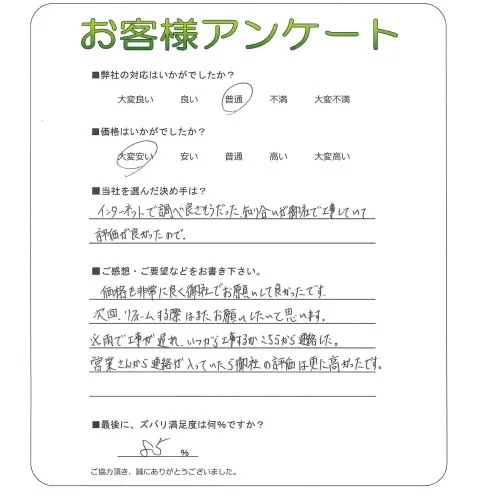 お客様アンケート
■弊社の対応はいかがでしたか？
大変良い 良い 普通 不満 大変不満
■価格はいかがでしたか？
大変安い 安い 普通 高い 大変高い
■当社を選んだ決め手は？
インターネットで調べ良さそうだった、知り合いが御社で工事していて
評価が良かったので。
■ご感想・ご要望などをお書き下さい。
価格も非常に良く御社でお願いして良かったです。
次回、リフォームする際はまたお願いしたいて思います。
雨で工事が遅れ、いつから工事するかこちらから連絡した。
営業さんから連絡が入っていたら御社の評価は更に高かったです。
■最後に、ズバリ満足度は何％ですか？
85 ％
ご協力頂き、誠にありがとうございました。